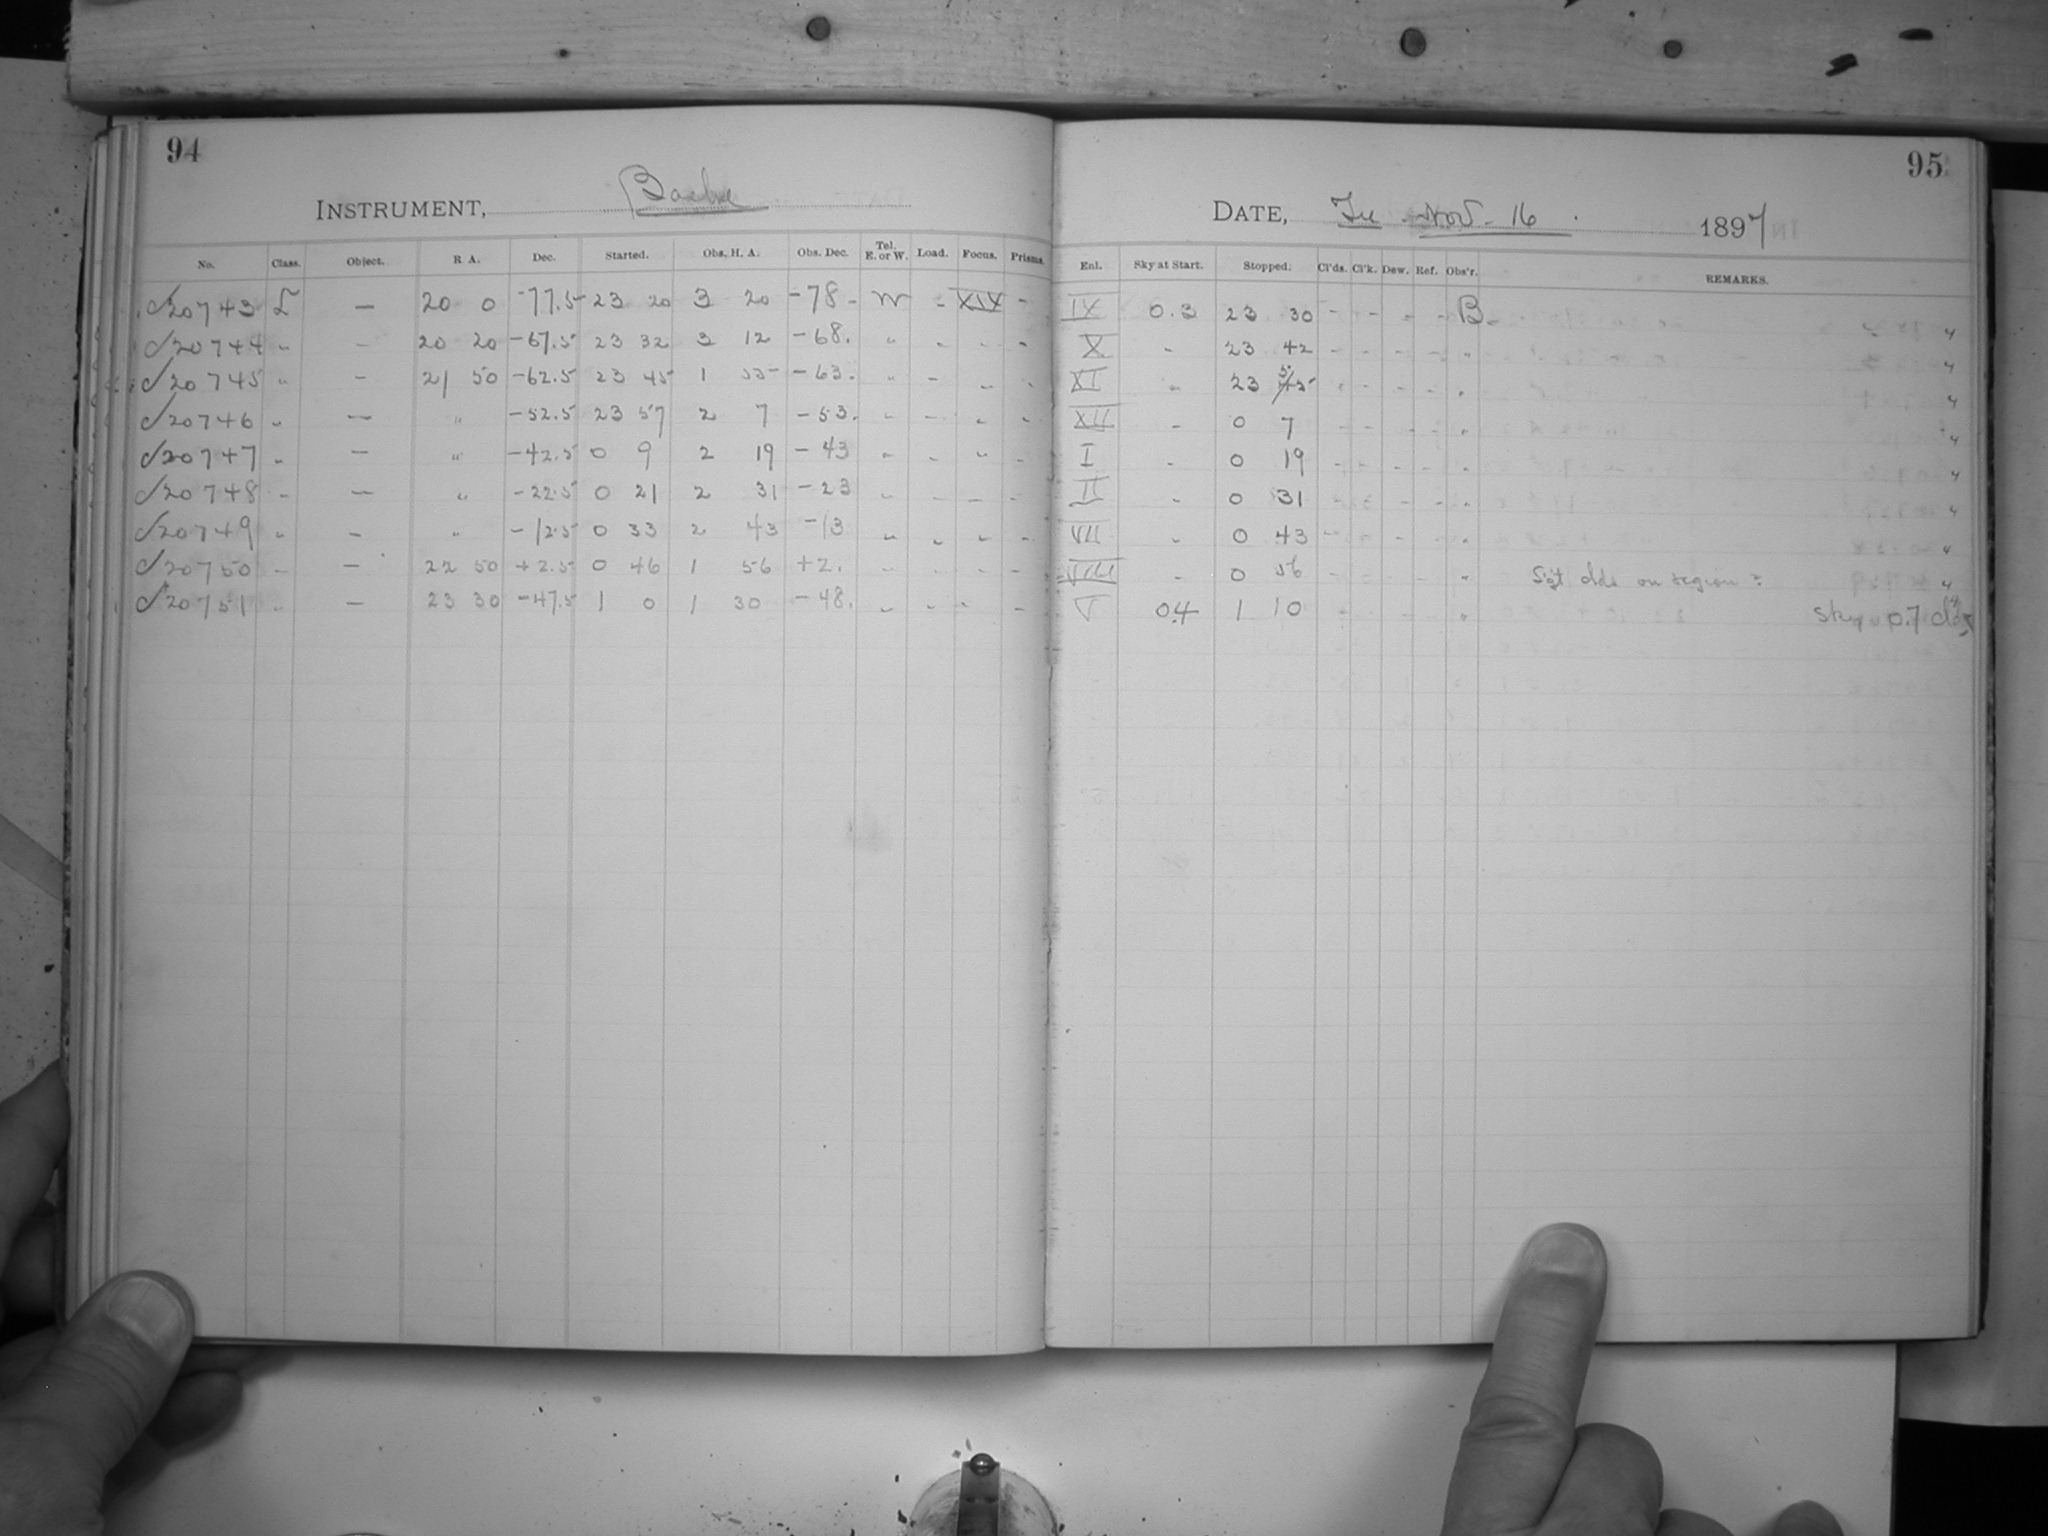 94
INSTRUMENT, Bache
No. Class. Object. R A. Dec. Started. Obs. H. A. Obs. Dec. Tel. E. or W. Load. Focus. Prisms.
√20743 L — 20 0 -77.5 23 20 3 20 -78 - W - XIX -
√20744 " - 20 20 -67.5 23 32 3 12 -68. " - - -
√20745 " - 21 50 -62.5 23 45 1 55 -63. " - " -
√20746 " — " -52.5 23 57 2 7 -53. " - " -
√20747 " — " -42.5 0 9 2 19 -43 " - " -
√20748 " — " -22.5 0 21 2 31 -23 " - - -
√20749 " - " -12.5 0 33 2 43 -13 " " " -
√20750 - — 22 50 +2.5 0 46 1 56 +2. " - " -
√20751 " — 23 30 -47.5 1 0 1 30 -48. " - " -
95
DATE, Tu Nov. 16 1897
Enl. Sky at Start. Stopped. Cl'ds. Cl'k. Dew. Ref. Obs'r. REMARKS.
IX 0.3 23 30 - - - - B. 4
X " 23 42 - - - - " 4
XI " 23 55 - - - - " 4
XII - 0 7 - - - - " 4
I - 0 19 - - - - " 4
II " 0 31 - - - - " 4
VII " 0 43 - - - - " 4
VIII - 0 56 - - - - " clds on region? 4
V 0.4 1 10 - - - - " Sky 0.7